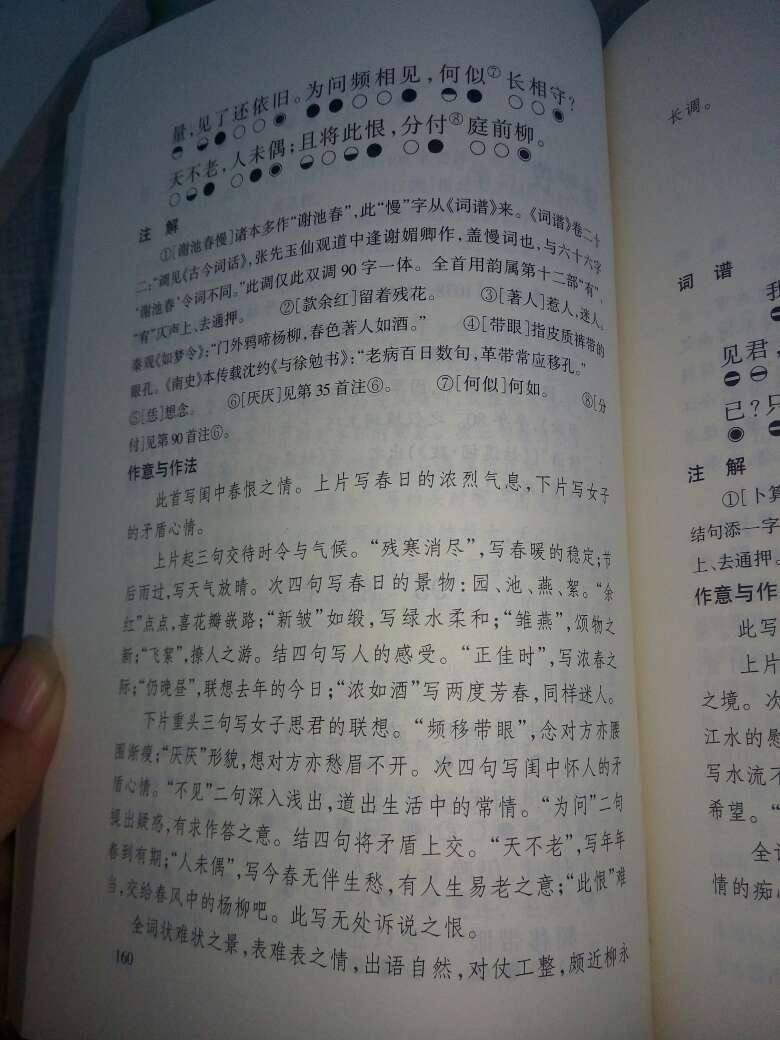 量，见了还依旧。为问频相见，何似⑦长相守？
天不老，人未偶；且将此恨，分付⑧庭前柳。
注 解
①[谢池春慢]诸本多作“谢池春”，此“慢”字从《词谱》来。《词谱》卷二十
二：“调见《古今词话》，张先玉仙观道中逢谢媚卿作，盖慢词也，与六十六字
‘谢池春’令词不同。”此调仅此双调90字一体。全首用韵属第十二部“有”，
“有”仄声上、去通押。 ②[款余红]留着残花。 ③[著人]惹人，迷人。
秦观《如梦令》：“门外鸦啼杨柳，春色著人如酒。” ④[带眼]指皮质裤带的
眼孔。《南史》本传载沈约《与徐勉书》：“老病百日数旬，革带常应移孔。”
⑤[恁]想念。 ⑥[厌厌]见第35首注⑥。 ⑦[何似]何如。 ⑧[分
付]见第90首注⑥。
作意与作法
此首写闺中春恨之情。上片写春日的浓烈气息，下片写女子
的矛盾心情。
上片起三句交待时令与气候。“残寒消尽”，写春暖的稳定；节
后雨过，写天气放晴。次四句写春日的景物：园、池、燕、絮。“余
红”点点，喜花瓣嵌路；“新皱”如缎，写绿水柔和；“雏燕”，颂物之
新；“飞絮”，撩人之游。结四句写人的感受。“正佳时”，写浓春之
际；“仍晚昼”，联想去年的今日；“浓如酒”写两度芳春，同样迷人。
下片重头三句写女子思君的联想。“频移带眼”，念对方亦腰
围渐瘦；“厌厌”形貌，想对方亦愁眉不开。次四句写闺中怀人的矛
盾心情。“不见”二句深入浅出，道出生活中的常情。“为问”二句
提出疑惑，有求作答之意。结四句将矛盾上交。“天不老”，写年年
春到有期；“人未偶”，写今春无伴生愁，有人生易老之意；“此恨”难
当，交给春风中的杨柳吧。此写无处诉说之恨。
全词状难状之景，表难表之情，出语自然，对仗工整，颇近柳永
160
长调。
词 谱
见君，
已？只
注 解
①[卜算
结句添一字
上、去通押。
作意与作
此写
上片
之境。次
江水的慰
写水流不
希望。“
全词
情的痴